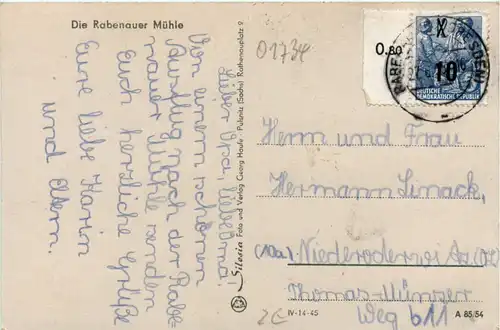 Die Rabenauer Mühle
Lieber Opa, liebe Oma!
Von einem schönen
Ausflug nach der Rabe-
nauer Mühle senden
Euch herzliche Grüße
Eure liebe Karin
und Eltern.
Silesia Foto und Verlag Georg Haufe · Pulsnitz (Sachs) Rathenauplatz 2
01734
0.80
10
DEUTSCHE
DEMOKRATISCHE REPUBLIK
Herrn und Frau
Hermann Simack,
(10a) Niederoderwitz
Thomas-Münzer
Weg b11
IV-14-45
A 85/54